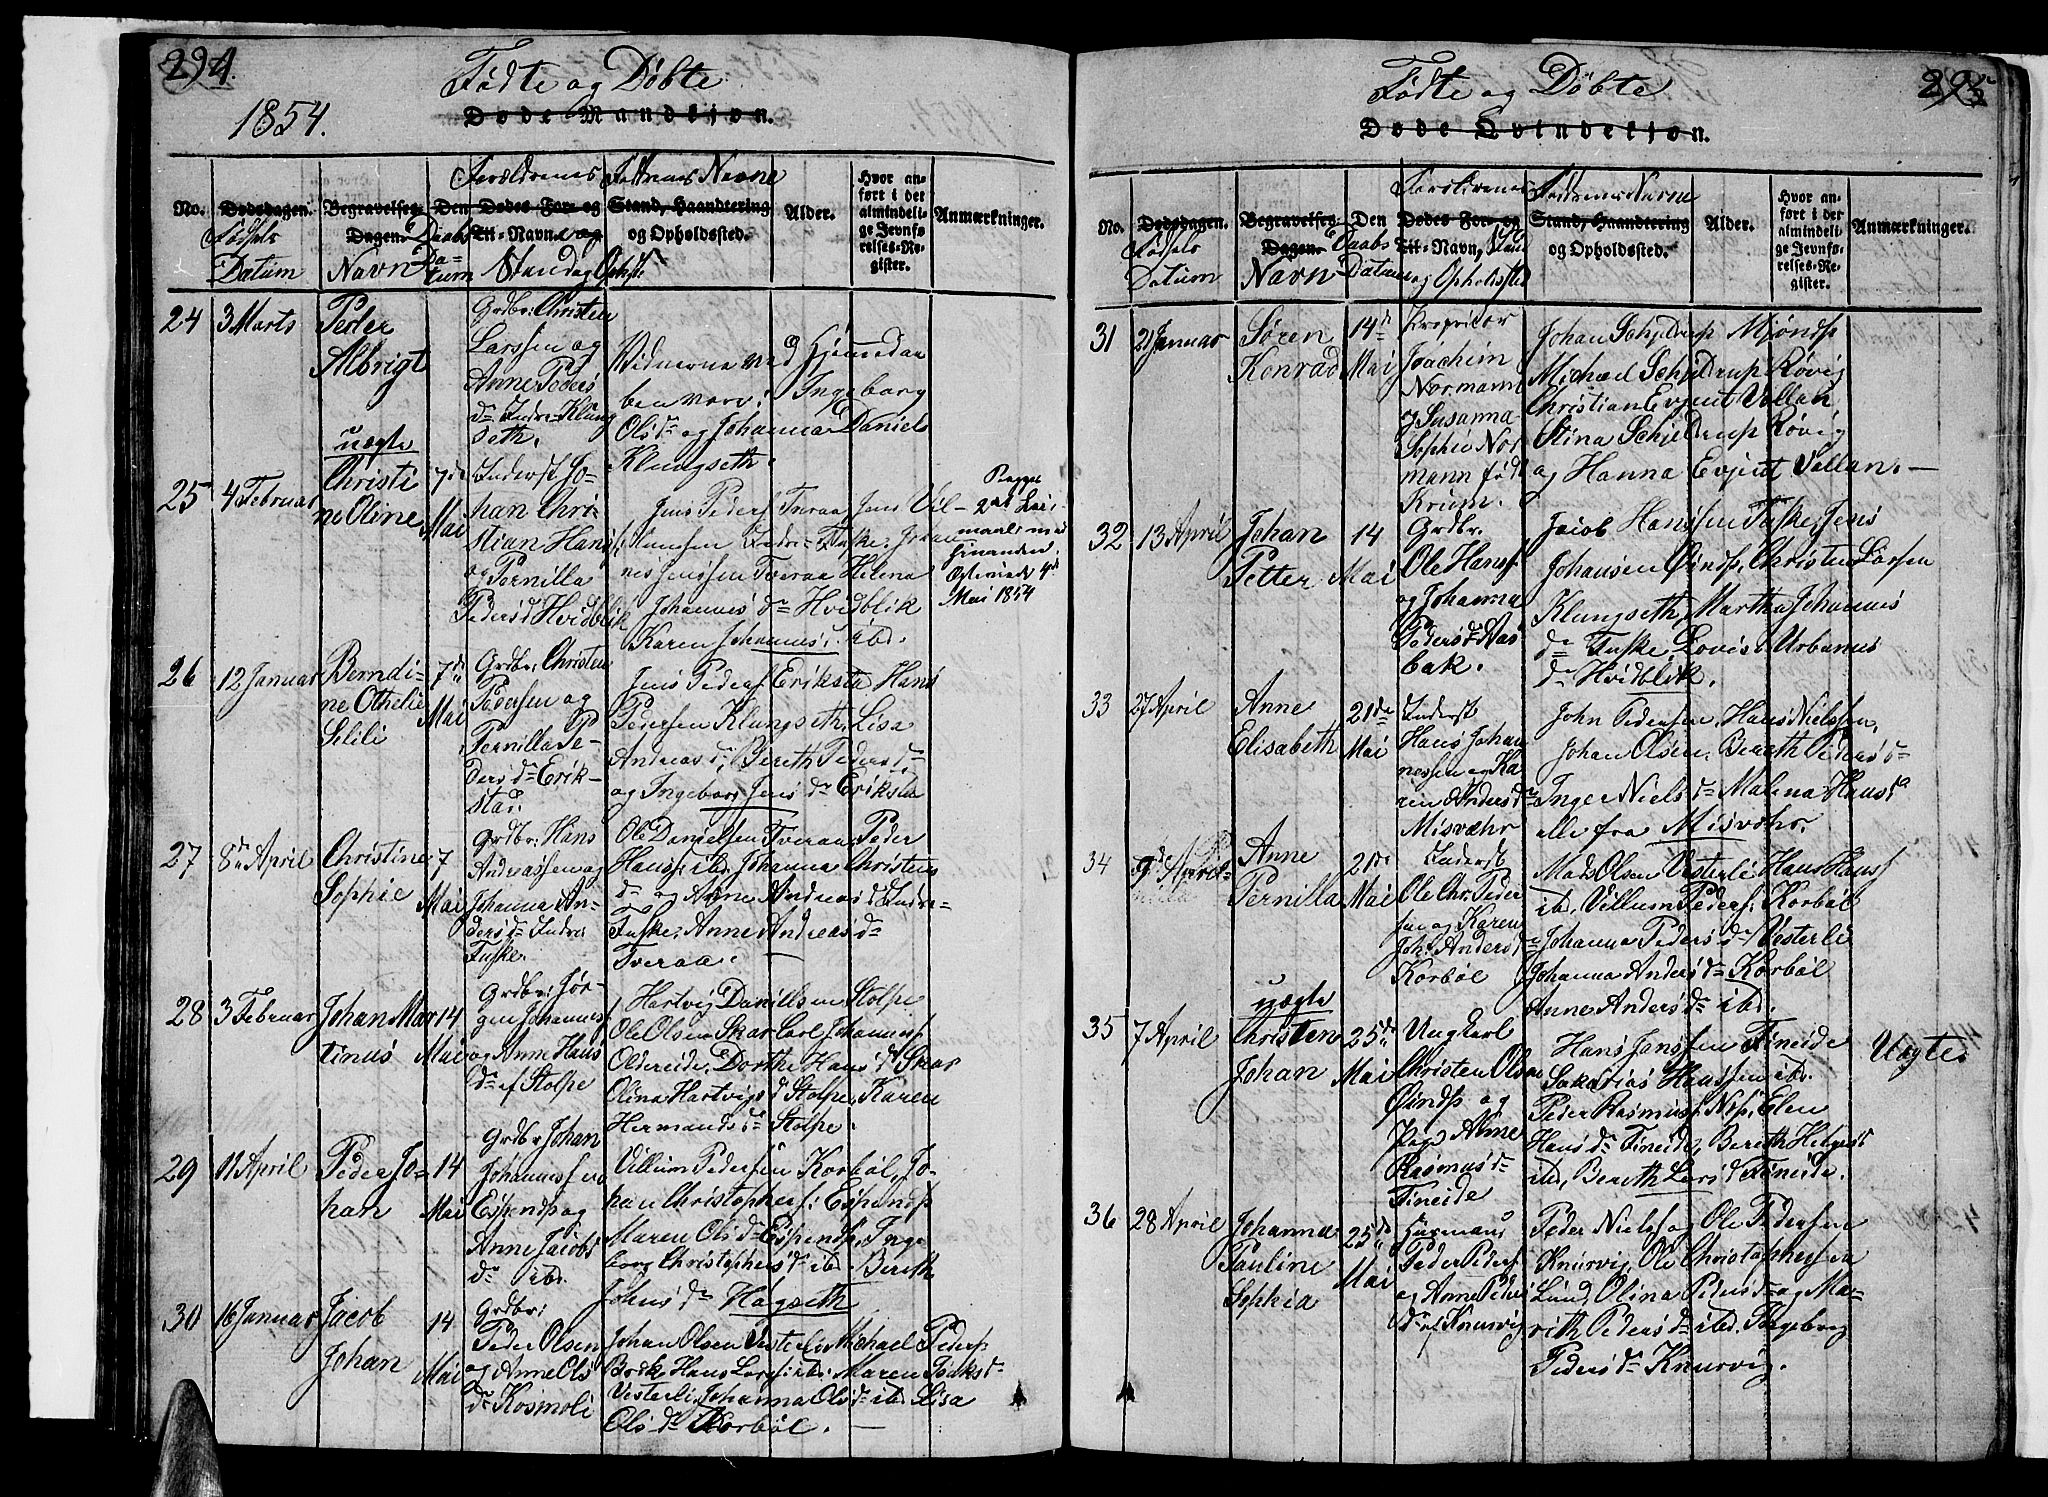 294.
Fødte og Døbte
1854.
Døde Mandkjøn.
Forældrenes
Faddrenes Navne
No.
Dødsdagen.
Fødsels
Datum
Begravelses-
Dagen.
Navn
Den
Daabs
Da-
tum
Dødes For- og
Til-Navn og
Stand og Opholdst
Stand, Haandtering
og Opholdssted.
Alder.
Hvor an-
ført i det
almindeli-
ge Jevnfø-
relses-Re-
gister.
Anmærkninger.
24
3 Marts
Peder
Albrigt
Grdbr: Christen
Larssen og
Anne Peders
dr Indre Klung
seth.
Vidnerne ved Hjemedaa
ben vare: Ingeborg
Olsdr og Johanna Daniels
Klungseth.
25
4 Februar
uægte
Christi
ne Oline
7de
Mai
Inderst Jo-
han Chri-
stian Hans
og Pernilla
Pedersdr Hvidblik
Jens Peders Tveraa Jens Vil-
lumsen Indre Fuske, Johan
nes Jenssen Tveraa Helena
Johannesdr Hvidblik
Karen Johannesdr ibd.
Begges
2det Leier
maal med
hinanden.
Mai 1854
26
12 Januar
Berndi-
ne Othelie
Selili
7de
Mai
Grdbr: Christen
Pedersen og
Pernilla Pe-
dersdr Erik-
stad.
Jens Peders Eriksta Hans
Pedersen Klungseth, Lisa
Andreasdr, Bereth Pedersdr
og Ingeborg Jensdr Eriksta
27
8de April
Christine
Sophie
7
Mai
Grdbr: Hans
Andreassen og
Johanna An-
dersdr Indre
Fuske.
Ole Danielsen Tveraa Peder
Hanss: ibd. Johanna Christens
dr og Anne Andreasdr Indre-
Fuske, Anne Andreasdr
Tveraa.
28
3 Februar
Johan Mar
tinus
14
Mai
Grdbr: Jør-
gen Johannes
og Anne Hans
dr af Stolpe
Hartvig Danielsen Stolpe
Ole Olsen Skar Carl Johannes
Oldereide, Dorthe Hansdr Skar
Olina Hartvigsdr Stolpe, Karen
Hermandsdr Stolpe.
29
11 April
Peder Jo-
han
14
Mai
Grdbr Johan
Johannessen
Espenes og
Anne Jacobs
dr ibd.
Villum Pedersen Korbøl, Jo-
han Christophers: Espenes
Maren Olsdr Espenes, Inge
borg Christophersdr ibd. Bereth
Johnsdr Hagseth
30
16 Januar
Jacob
Johan
14
Mai
Grdbr:
Peder Olsen
og Anne Ols
dr Kosmoli
Johan Olsen Vesterli Michael Peders
Hans Larss: ibd. Maren
Vesterli, Johanna Olsdr ibd. Lisa
Olsdr Korbøl.
295
Fødte og Døbte
Døde Qvindekjøn.
Forældrenes
Faddrenes Navne
No.
Dødsdagen.
Fødsels
Datum
Begravelses-
Dagen.
Navn
Den
Daabs
Datum
Dødes For- og
Til-Navn, Stand
og Opholdssted
Stand, Haandtering
og Opholdssted.
Alder.
Hvor an-
ført i det
almindeli-
ge Jevnfø-
relses-Re-
gister.
Anmærkninger.
31
2 Januar
Søren
Konrad
14de
Mai
Proprietær
Joachim
Normann
og Susanna
Sophie Nor
mann født
Krium.
Johan Schjeldrup Mjønes
Michael Schjeldrup Røvig
Christian Evjent Vollan
Stina Schjeldrup Røvig
og Hanna Evjent Vollan.
32
13 April
Johan
Petter
14
Mai
Grdbr.
Ole Hans
og Johanna
Pedersdr Aas
bak.
Jacob Hanssen Fuske, Jens
Johansen Øines, Christen Larsen
Klungseth, Martha Johannes
dr Fuske, Lovisa Urbanus
dr Hvidblik.
33
27 April
Anne
Elisabeth
21de
Mai
Inderst
Hans Johan
nessen og Ka
ren Andersdr
Misvæhr
John Pedersen, Hans Nielssen,
Johan Olsen, Bereth Pedersdr
Inger Nielsdr Malena Hansdr
alle fra Misvæhr.
34
9de April
Anne
Pernilla
21de
Mai
Inderst
Ole Chr: Peder
sen og Karen
Joh: Andersdr
Korbøl
Mads Olsen Vesterli Hans Hans
ibd. Villum Peders: Korbøl
Johanna Pedersdr Vesterli
Johanna Andersdr Korbøl
Anne Andersdr ibd.
35
7 April
uægte
Christen
Johan
25de
Mai
Ungkarl
Christen Olsen
Øines og
Pige Anne
Rasmusdr
Fineide
Hans Janssen Fineide
Sakarias Hanssen ibd.
Peder Rasmus: Nøs, Elen
Hansdr Fineide, Bereth Helgesdr
ibd, Bereth Larsdr Fineide.
Uægte
36
28 April
Johanna
Pauline
Sophia
25de
Mai
Huusmand
Peder Peders
og Anne Peders
dr af Knurvig
Peder Niels og Ole Pedersen
Knurvig, Ole Christophersen
Lund, Olina Pedersdr og Ma-
rith Pedersdr ibd. Ingeborg
Pedersdr Knurvig.